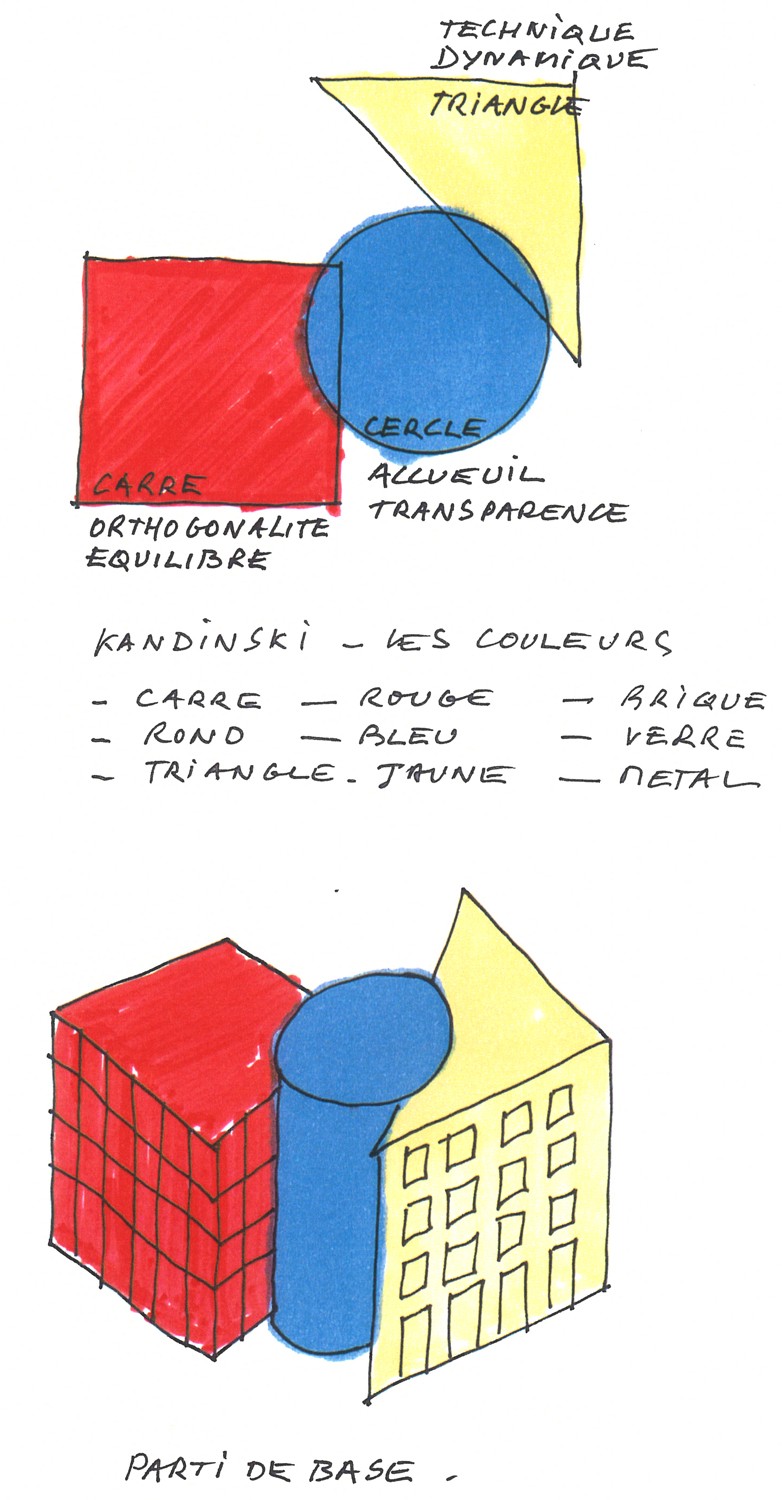 TECHNIQUE
DYNAMIQUE
TRIANGLE
CERCLE
CARRE
ACCUEUIL
TRANSPARENCE
ORTHOGONALITE
EQUILIBRE
KANDINSKI - LES COULEURS
- CARRE - ROUGE - BRIQUE
- ROND - BLEU - VERRE
- TRIANGLE - JAUNE - METAL
PARTI DE BASE.